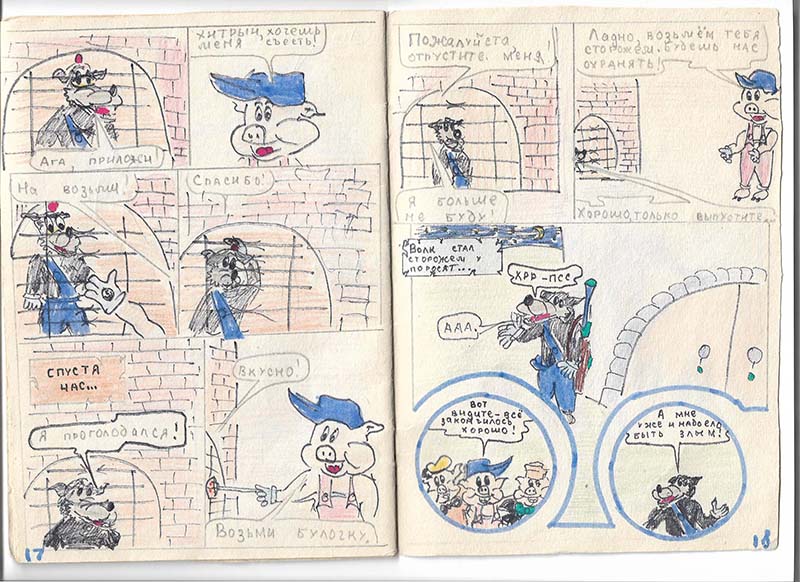 АГА, ПРИЛОЖИ!
ХИТРЫЙ, ХОЧЕШЬ
МЕНЯ СЪЕСТЬ!
НА ВОЗЬМИ!
СПАСИБО!
СПУСТЯ
ЧАС...
Я ПРОГОЛОДАЛСЯ!
ВКУСНО!
ВОЗЬМИ БУЛОЧКУ.
17
ПОЖАЛУЙСТА,
ОТПУСТИТЕ МЕНЯ!
Я БОЛЬШЕ
НЕ БУДУ!
ЛАДНО, ВОЗЬМЁМ ТЕБЯ
СТОРОЖЕМ. БУДЕШЬ НАС
ОХРАНЯТЬ!
ХОРОШО, ТОЛЬКО ВЫПУСТИТЕ...
ВОЛК СТАЛ
СТОРОЖЕМ У
ПОРОСЯТ...
ХРР-ПСС
ААА.
ВОТ
ВИДИТЕ-ВСЁ
ЗАКОНЧИЛОСЬ
ХОРОШО!
А МНЕ
УЖЕ И НАДОЕЛО
БЫТЬ ЗЛЫМ!
18